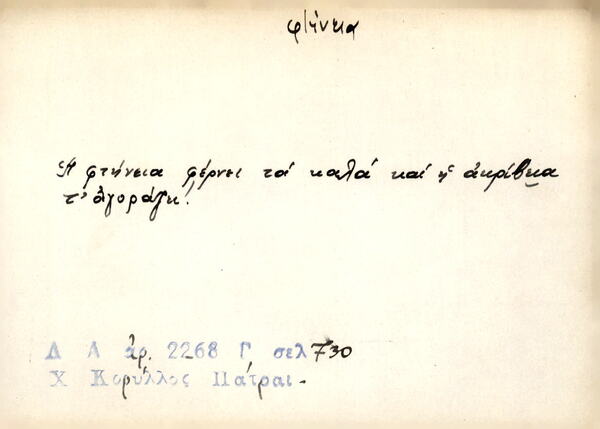 φτήνεια
Ἡ φτήνεια φέρνει τά καλά καί ἡ ἀκρίβεια
τ' ἀγοράζει.
Δ Α ἀρ. 2268 Γ σελ 730
Χ Κορύλλος Πάτραι.